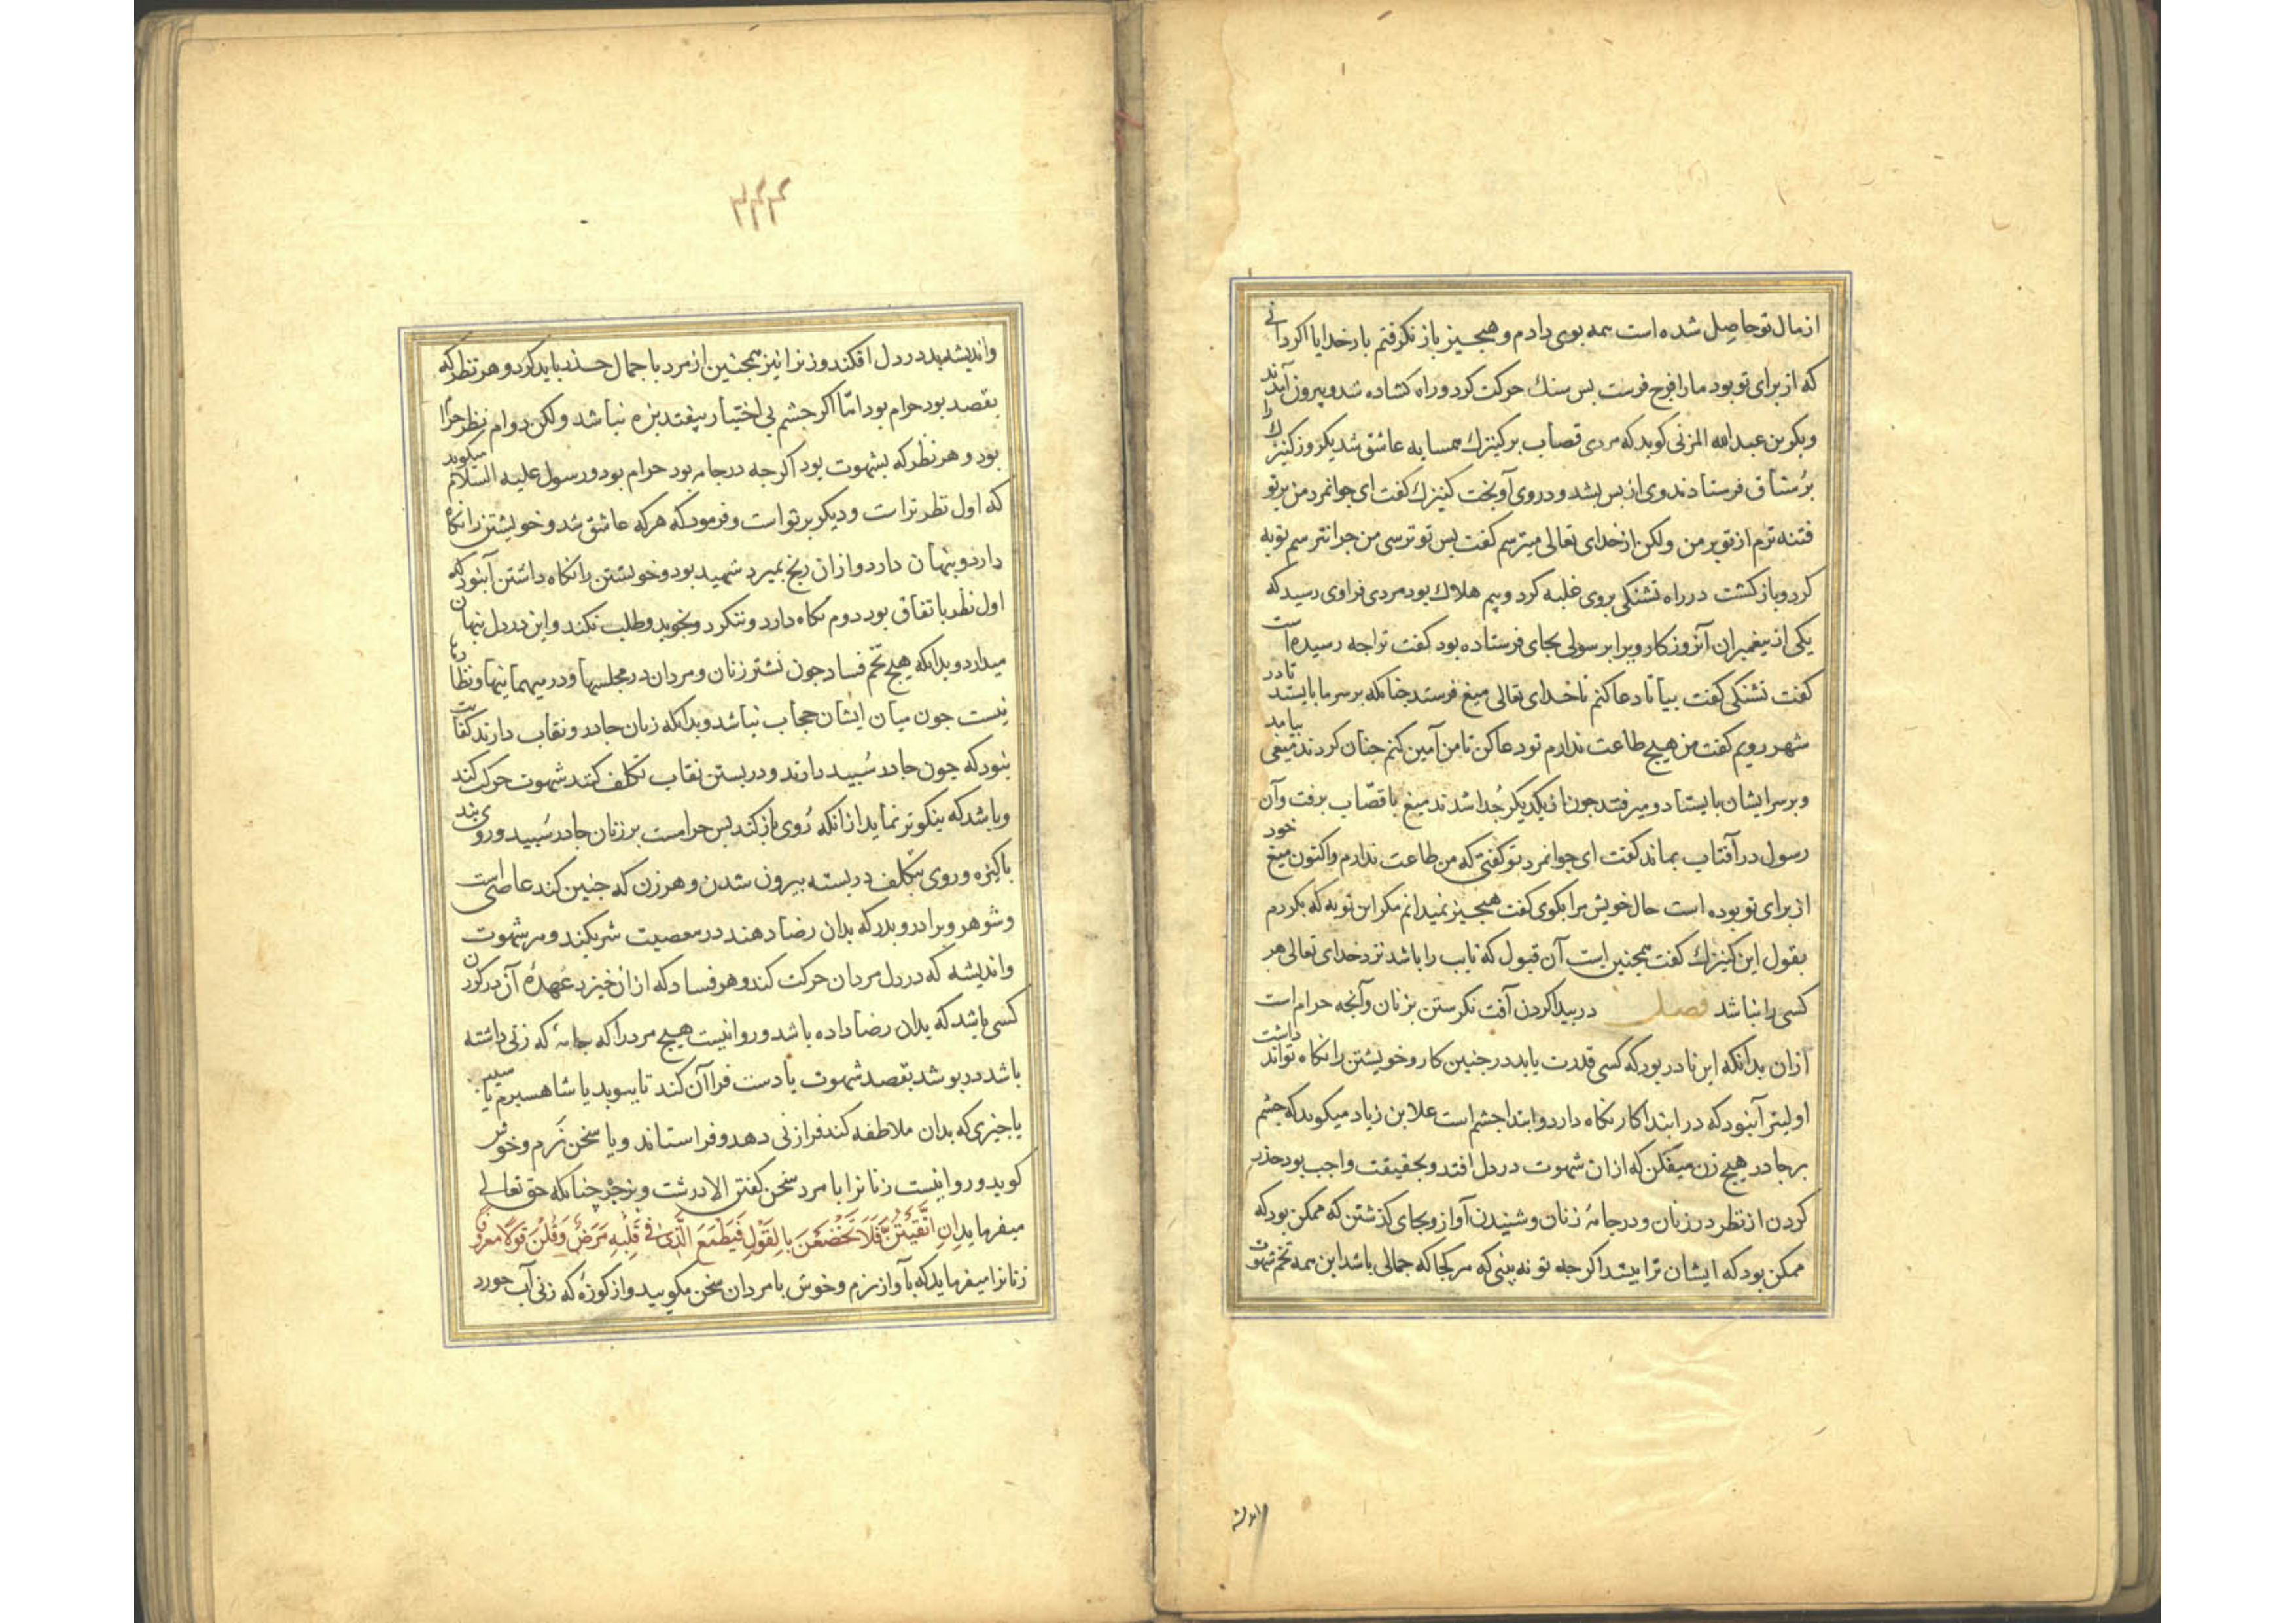 از مال تو حاصل شده است همه بوی دادم و هیچیز باز نکرفتم بار خدایا اکر دانی
که از برای تو بود مارا فرج فرست بس سنك حرکت کرد و راه کشاده شد و بیرون آمدند
و بکر بن عبد الله المزنی کوید که مردی قصاب بر کنیزك همسایه عاشق شد یکروز کنیزك را
برستاق فرستادند وی از بس بشد و در وی آویخت کنیزك کفت ای جوانمرد من بر تو
فتنه ترم از تو بر من ولکن از خدای تعالی میترسم کفت بس تو ترسی من جرا نترسم توبه
کرد و باز کشت در راه تشنکی بروی غلبه کرد و بیم هلاك بود مردی فراوی رسید که
یکی از بیغمبران آنروزکار ویرا برسولی بجای فرستاده بود کفت ترا جه رسیده است
کفت تشنکی کفت بیا تا دعا کنم تا خدای تعالی میغ فرستد جنانکه بر سر ما بایستد تا در
شهر رویم کفت من هیچ طاعت ندارم تو دعا کن تا من آمین کنم جنان کردند میغی بیامد
و بر سر ایشان بایستاد و میرفتند جون از یکدیکر جُدا شدند میغ با قصّاب برفت و آن
رسول در آفتاب بماند کفت ای جوانمرد تو کفتی که من طاعت ندارم و اکنون میغ خود
از برای تو بوده است حال خویش مرا بکوی کفت هیچیز نمیدانم مکر این توبه که بکردم
بقول این کنیزك کفت همجنین است آن قبول که تایب را باشد نزد خدای تعالی هر
کسی را نباشد فصل در بیدا کردن آفت نکرستن بزنان و آنجه حرام است
ازان بدانکه این نادر بود که کسی قدرت یابد در جنین کار و خویشتن را نکاه تواند داشت
اولیتر آنبود که در ابتدا کار نکاه دارد و ابتدا جشم است علا بن زیاد میکوید که جشم
بر جادر هیچ زن میفکن که ازان شهوت در دل افتد و بحقیقت واجب بود حذر
کردن از نظر در زنان و در جامۀ زنان و شنیدن آواز و بجای کذشتن که ممکن بود که
ممکن بود که ایشان ترا بینند اکر جه تو نه بینی که هر کجا که جمالی باشد این همه تخم شهوت
واندیشه
۳۴۴
و اندیشه بد در دل افکند و زنرا نیز همجنین از مرد با جمال حذر باید کرد و هر نظر که
بقصد بود حرام بود امّا اکر جشم بی اختیار بیفتد بزه نباشد ولکن دوام نظر حرام
بود و هر نظر که بشهوت بود اکر جه در جامه بود حرام بود و رسول علیه السلام میکوید
که اول نظر تراست و دیکر بر تو است و فرمود که هر که عاشق شد و خویشتن را نکاه
دارد و بنهان دارد و ازان رنج بمیرد شهید بود و خویشتن را نکاه داشتن آنبود که
اول نظر باتفاق بود دوم نکاه دارد و ننکرد و نجوید و طلب نکند و این در دل بنهان
میدارد و بدانکه هیچ تخم فساد جون نشستر زنان و مردان در مجلسها و در میهمانیها و نظارها
نیست جون میان ایشان حجاب نباشد و بدانکه زنان جادر و نقاب دارند کفایت
نبود که جون جادر سُبید دارند و در بستن نقاب تکلف کنند شهوت حرکت کند
و باشد که نیکوتر نماید ازانکه رُوی باز کند بس حرامست بر زنان جادر سُبید و روی بند
باکیزه و روی بتکلف در بسته بیرون شدن و هر زن که جنین کند عاصی است
و شوهر و برادر و بدر که بدان رضا دهند در معصیت شریکند و هر شهوت
و اندیشه که در دل مردان حرکت کند و هر فساد که ازان خیزد عهدۀ آن در کردن
کسی باشد که بدان رضا داده باشد و روا نیست هیچ مرد را که جامۀ که زنی داشته
باشد در بوشد بقصد شهوت یا دست فرا آن کند تا ببوید یا شاهسبرم یا سیب
یا جیزی که بدان ملاطفه کند فرا زنی دهد و فراستاند و یا سخن نرم و خوش
کوید و روا نیست زنانرا با مرد سخن کفتن الا درشت و بزجر چنانکه حق تعالی
میفرماید إِنِ اتَّقَيْتُنَّ فَلَا تَخْضَعْنَ بِالْقَوْلِ فَيَطْمَعَ الَّذِي فِي قَلْبِهِ مَرَضٌ وَقُلْنَ قَوْلًا مَعْرُوفًا
زنانرا میفرماید که بآواز نرم و خوش با مردان سخن مکویید و از کوزۀ که زنی آب خورد